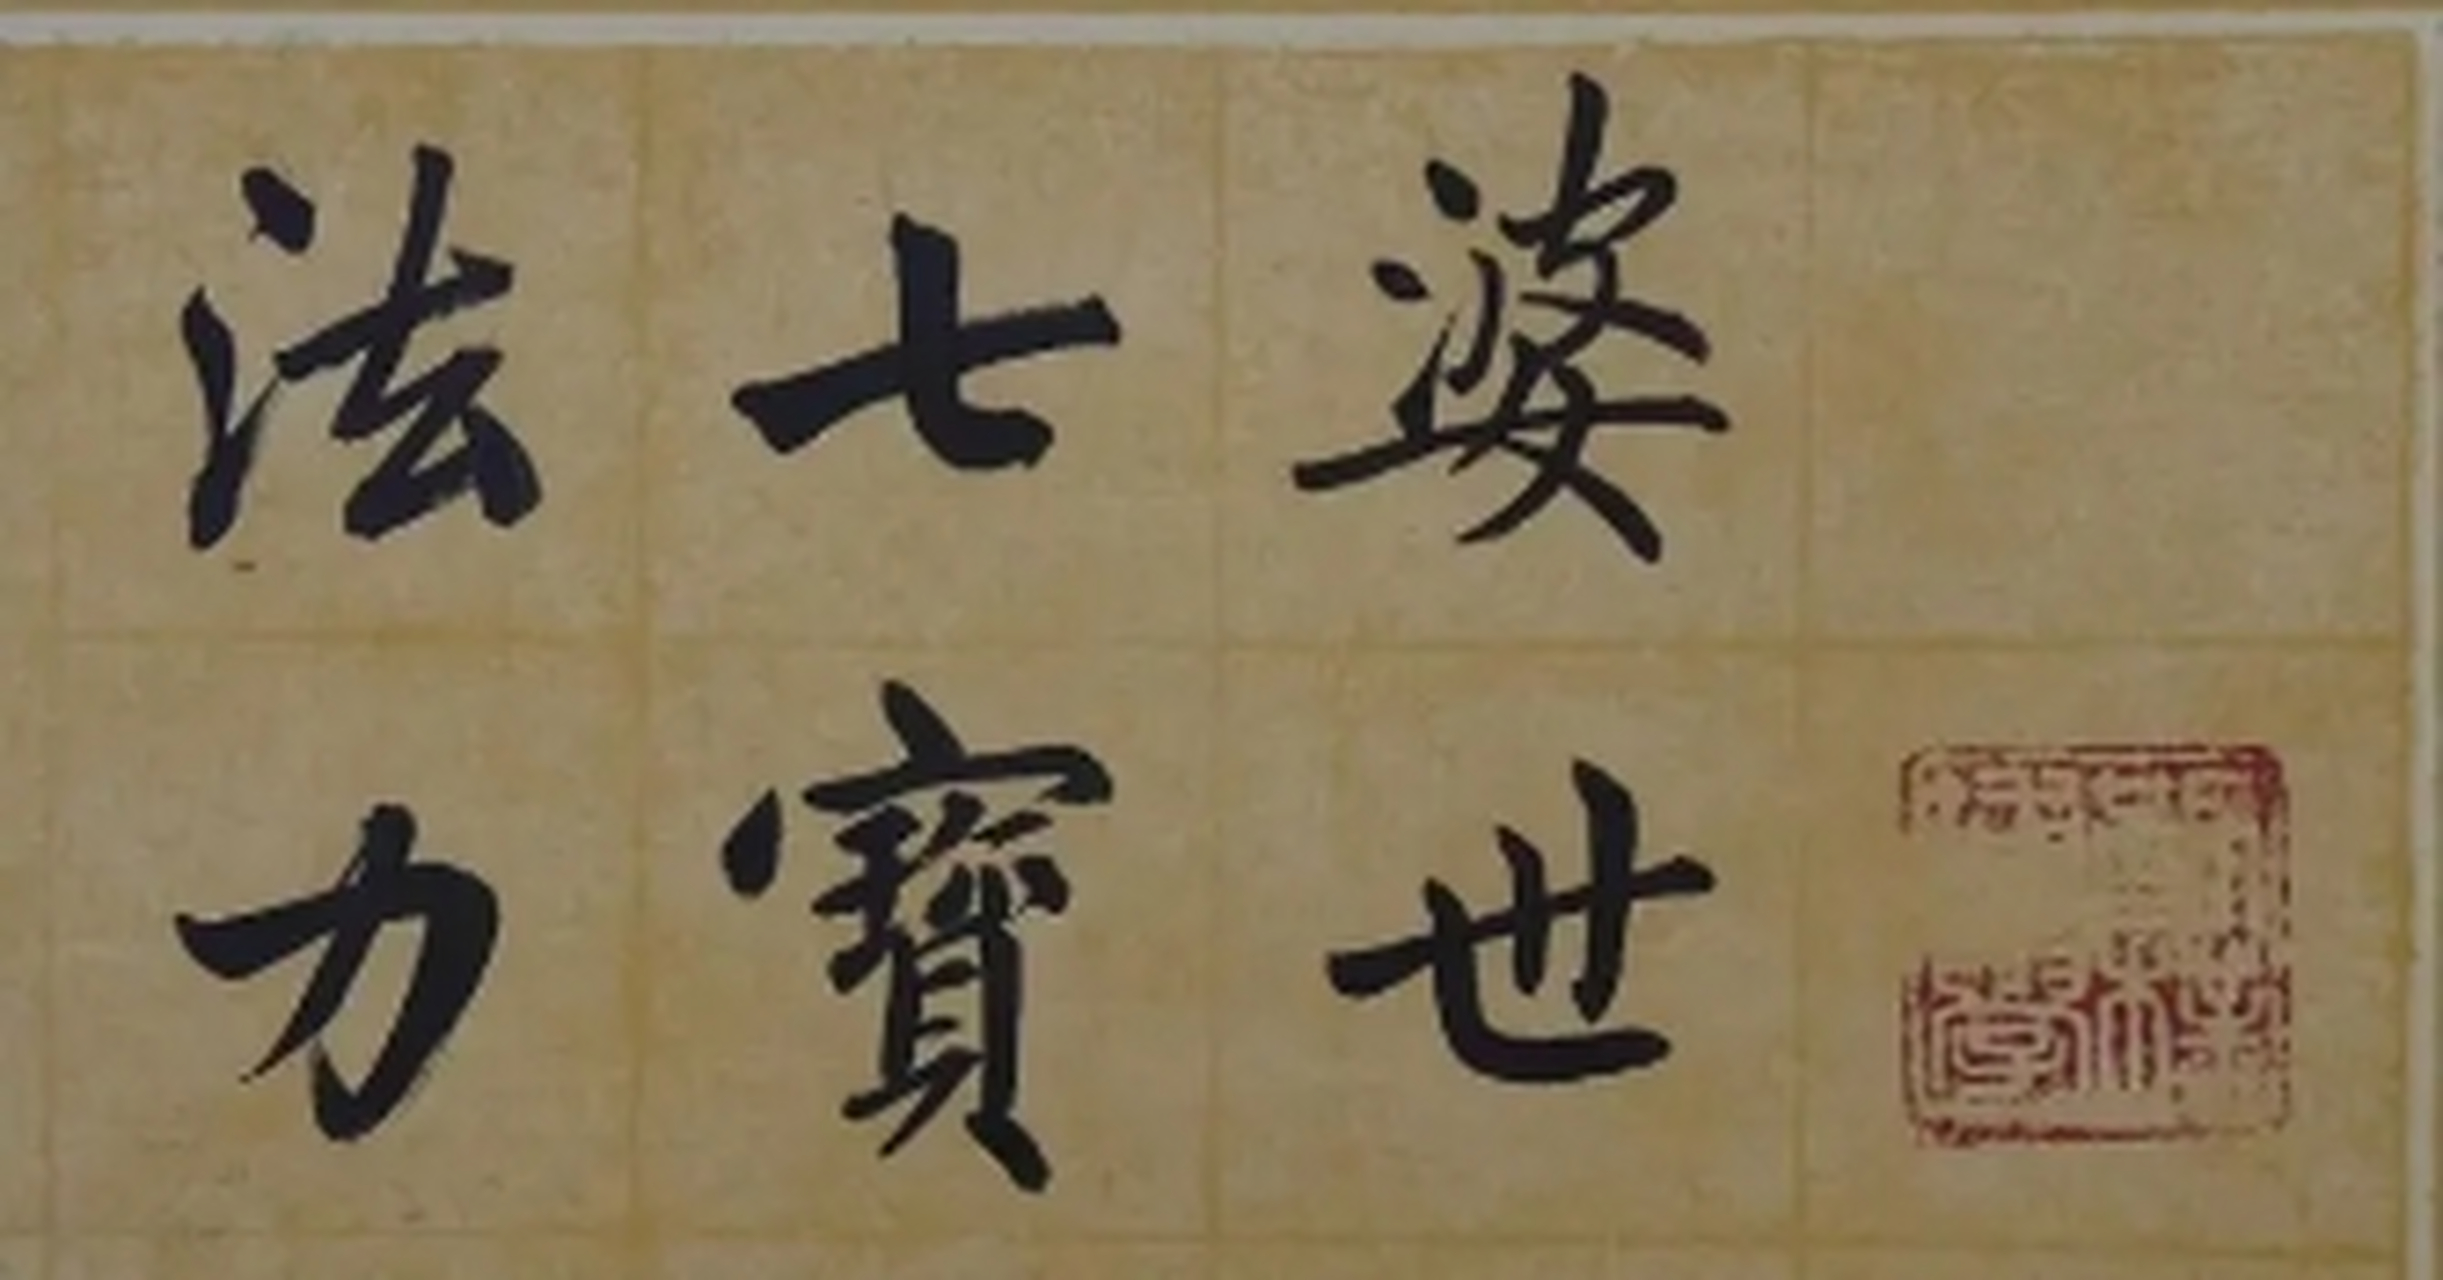 婆世
七寶
法力